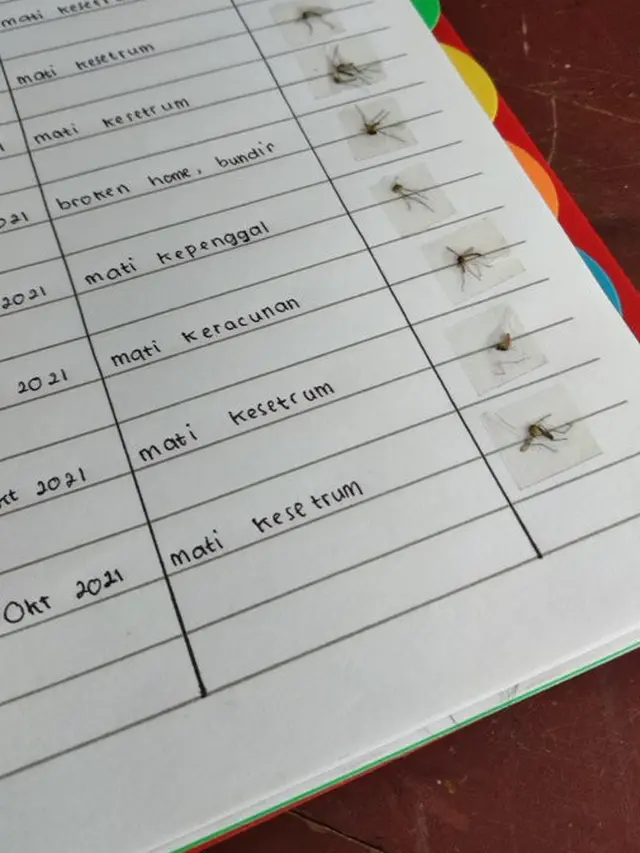 mati
mati kesetrum
mati kesetrum
021 broken home, bundir
2021 mati kepenggal
2021 mati keracunan
kt 2021 mati kesetrum
Okt 2021 mati kesetrum